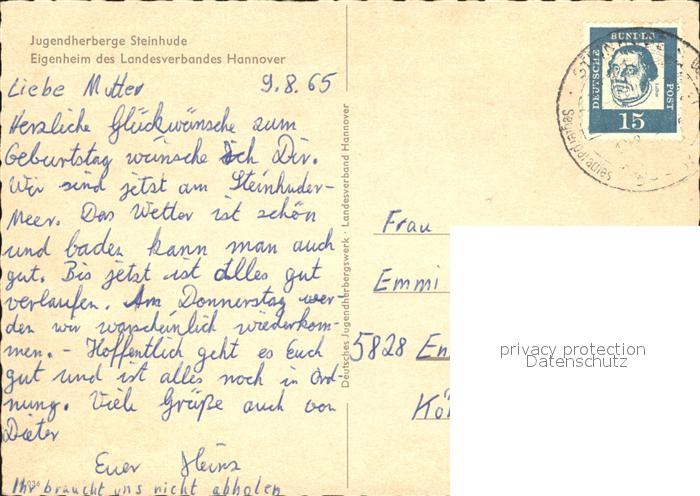 Jugendherberge Steinhude
Eigenheim des Landesverbandes Hannover
Liebe Mutter 9.8.65
Herzliche Glückwünsche zum
Geburtstag wünsche Ich Dir.
Wir sind jetzt am Steinhuder-
Meer. Das Wetter ist schön
und baden kann man auch
gut. Bis jetzt ist alles gut
verlaufen. Am Donnerstag wer-
den wir warscheinlich wiederkom-
men. - Hoffentlich geht es Euch
gut und ist alles noch in Ord-
nung. Viele Grüße auch von
Dieter
Euer Heinz
Ihr braucht uns nicht abholen
Deutsches Jugendherbergswerk · Landesverband Hannover
DEUTSCHE BUNDESPOST
15
Frau
Emmi
5828 En
Kö
privacy protection
Datenschutz